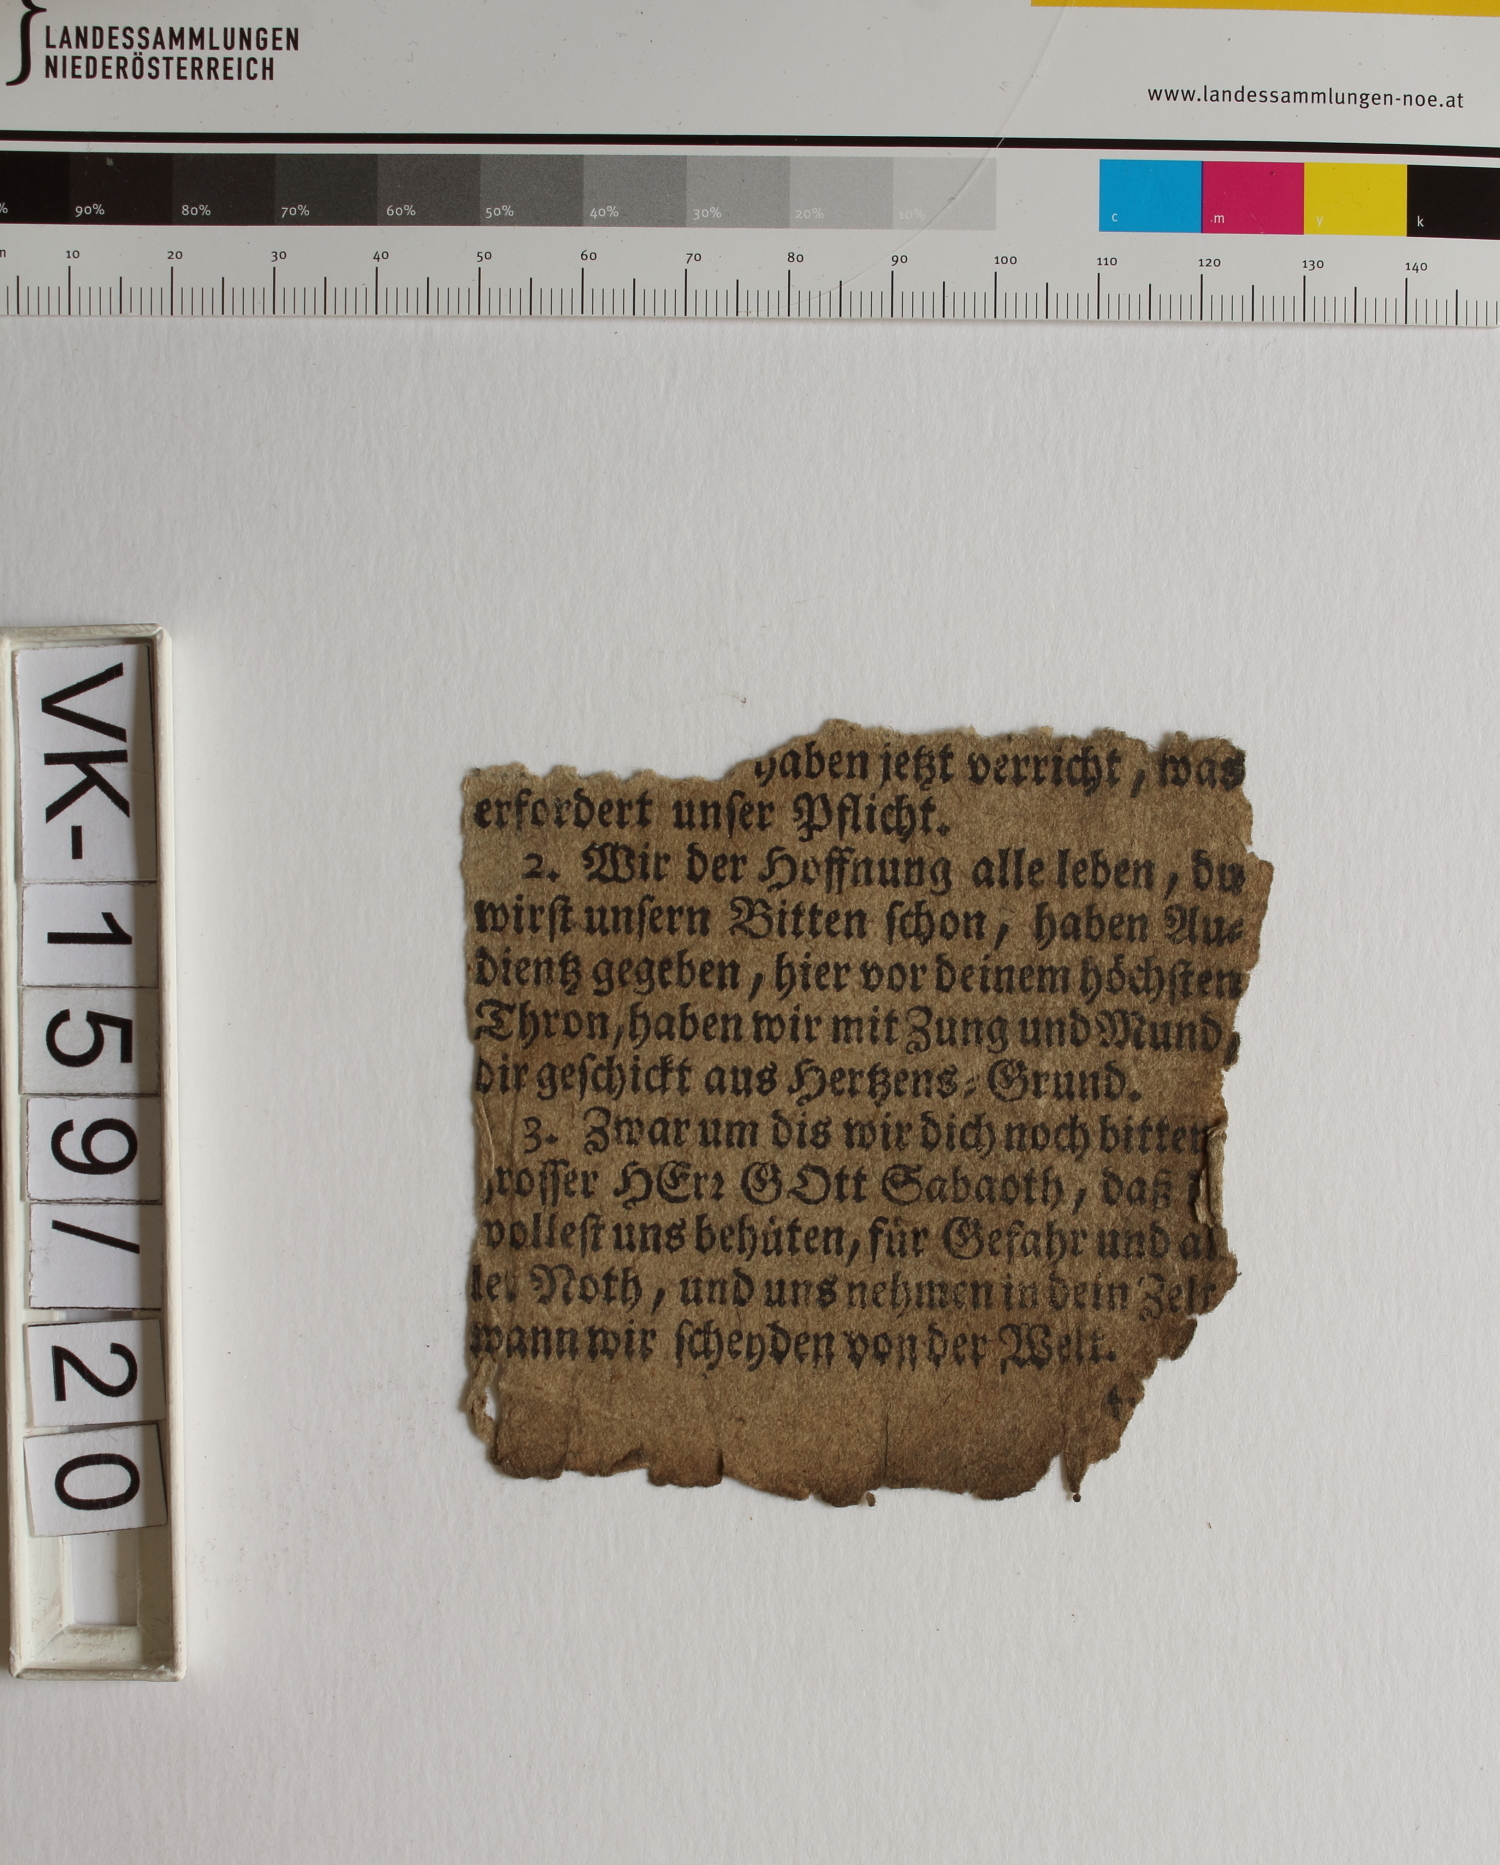 LANDESSAMMLUNGEN
NIEDERÖSTERREICH
www.landessammlungen-noe.at
90% 80% 70% 60% 50% 40% 30% 20% 10%
c m y k
10 20 30 40 50 60 70 80 90 100 110 120 130 140
VK-159/20
haben jetzt verricht, was
erfordert unser Pflicht.
2. Wir der Hoffnung alle leben, du
wirst unsern Bitten schon, haben Au-
dientz gegeben, hier vor deinem höchsten
Thron, haben wir mit Zung und Mund,
dir geschickt aus Hertzens-Grund.
3. Zwar um dis wir dich noch bitten
rosser HErr GOtt Sabaoth, daß
wollest uns behüten, für Gefahr und al
ler Noth, und uns nehmen in dein Zelt
wann wir scheyden von der Welt.